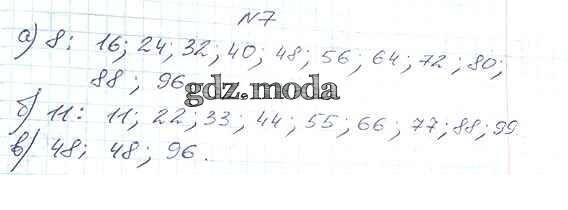 N7
а) 8: 16; 24; 32; 40; 48; 56; 64; 72; 80;
88; 96
gdz.moda
б) 11: 11; 22; 33; 44; 55; 66; 77; 88; 99
в) 48; 48; 96.